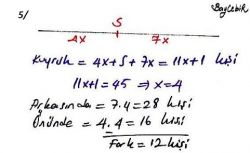 Baylebik
5/
S
4x 7x
Kuyruk = 4x+S+7x = 11x+1 kişi
11x+1=45 ⇒ x=4
Arkasında = 7.4=28 kişi
Önünde = 4.4=16 kişi
Fark=12 kişi